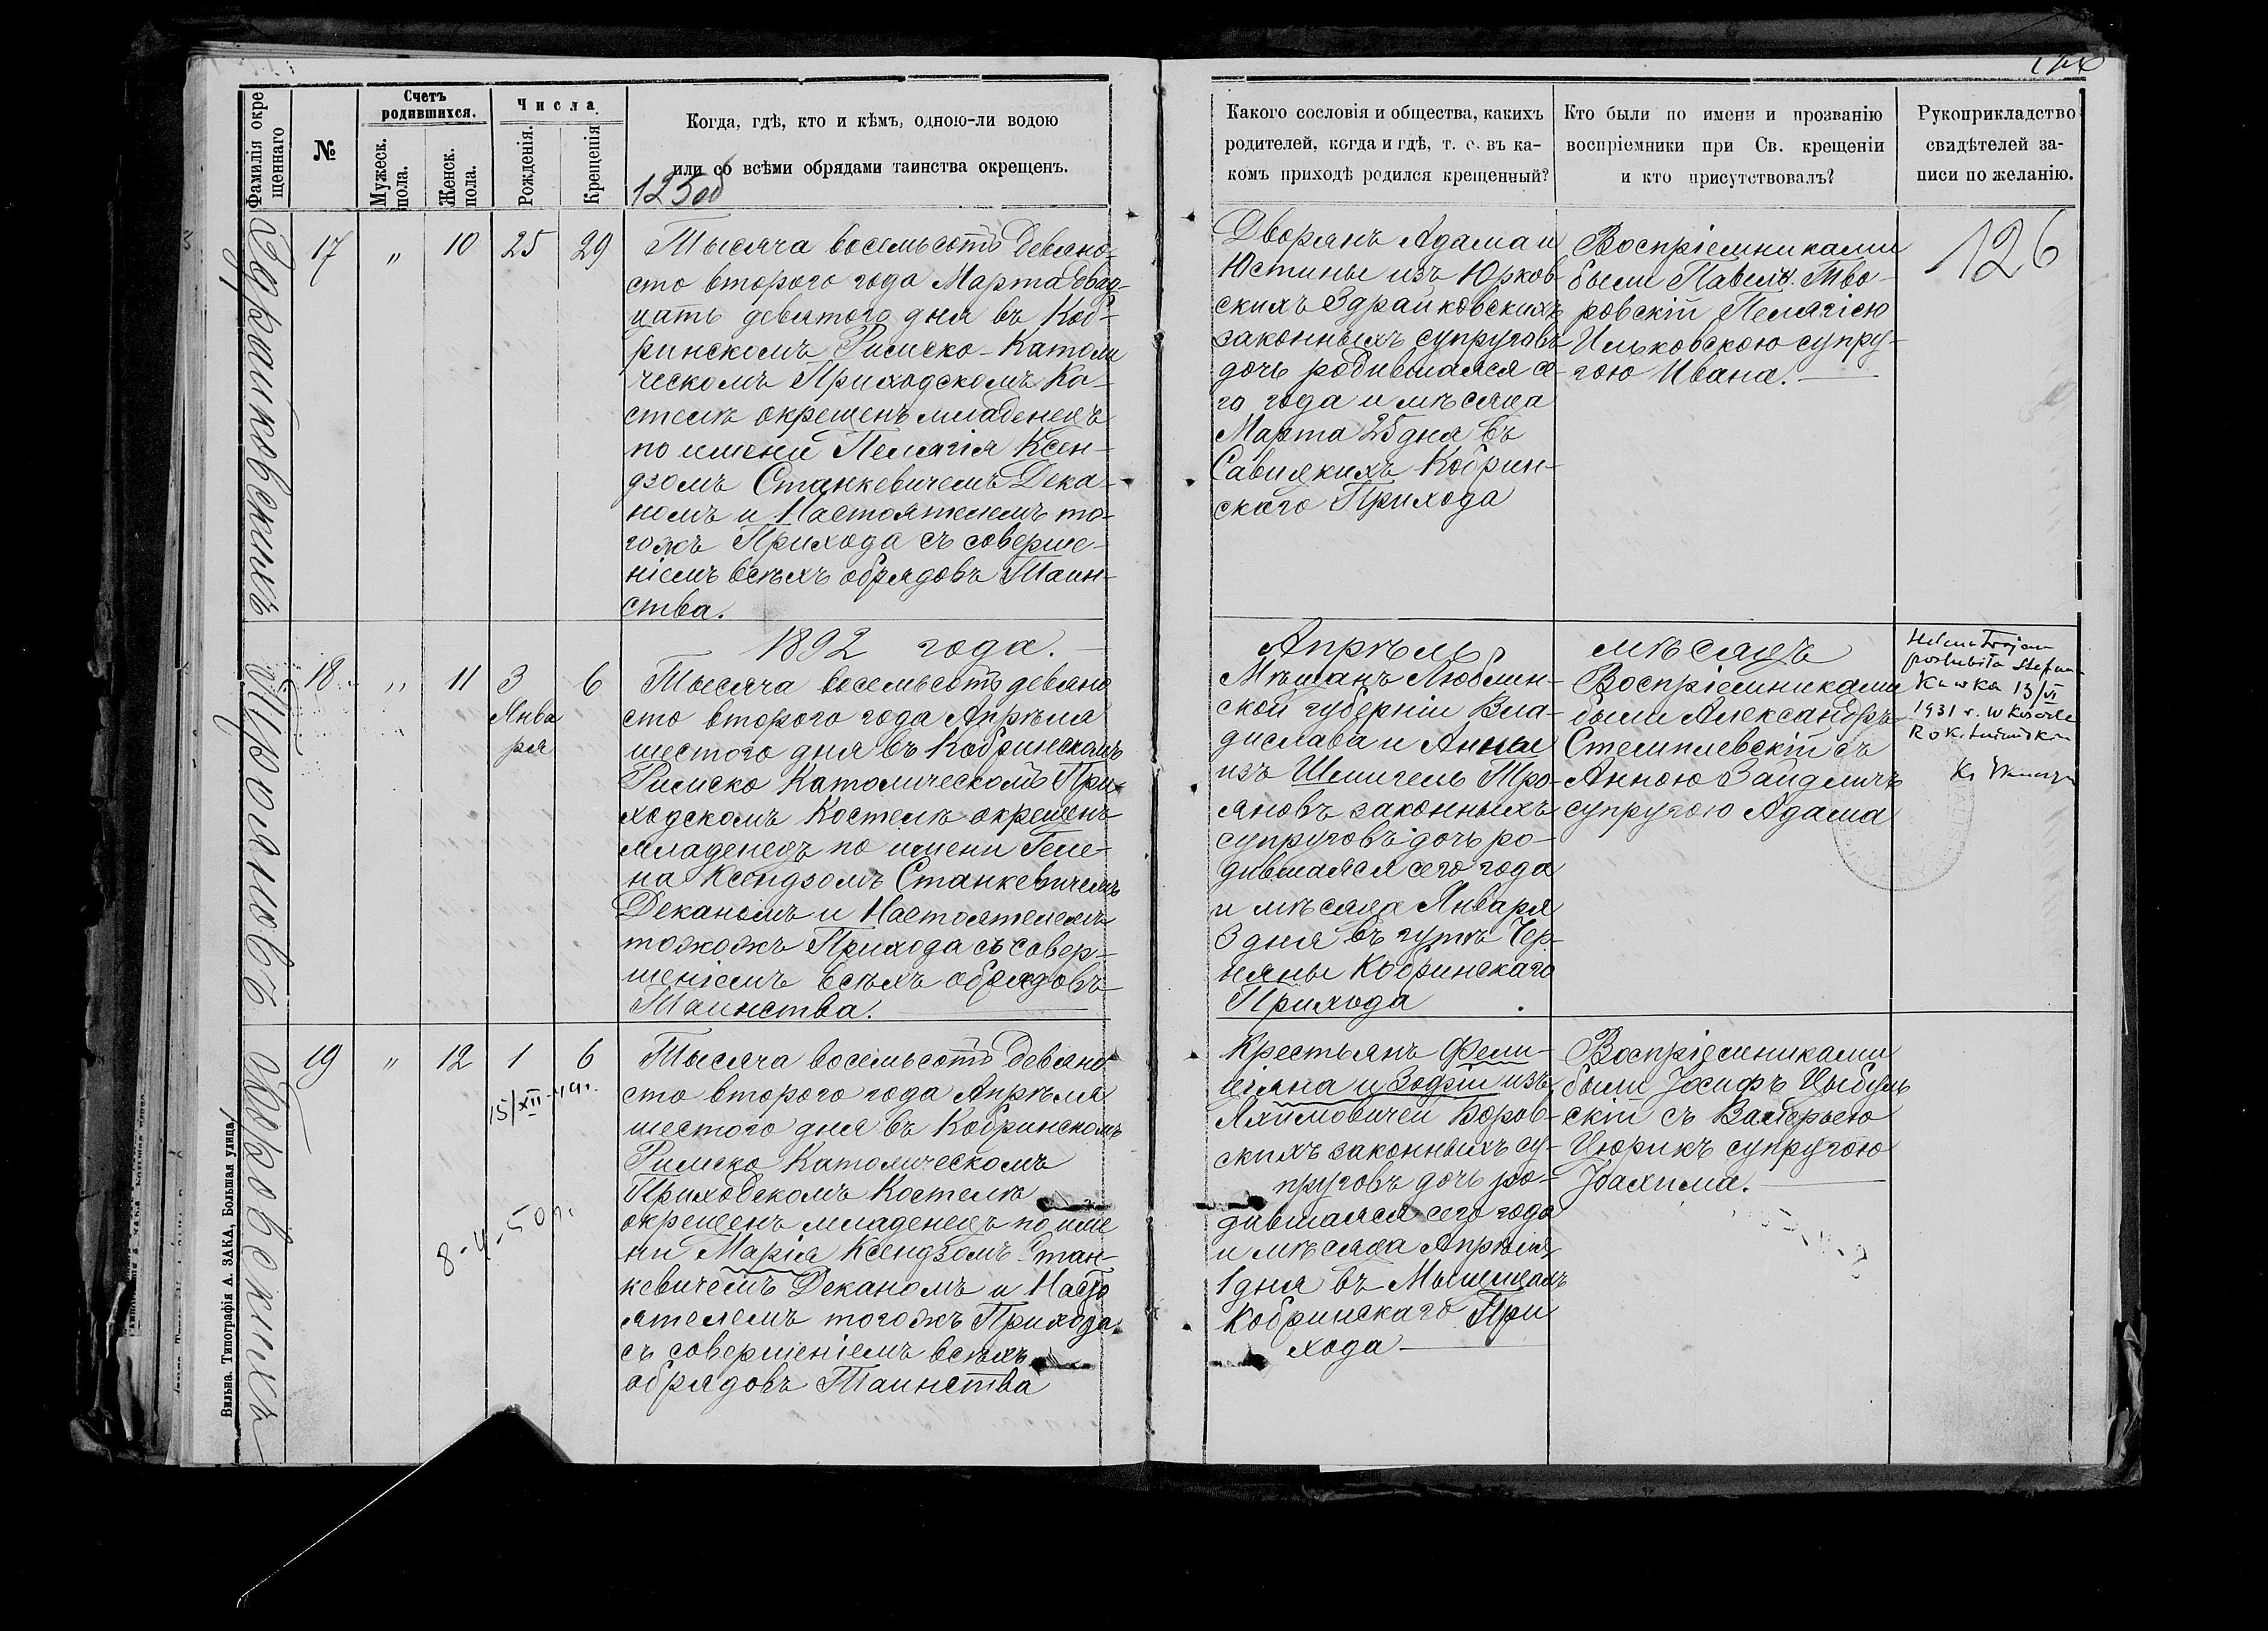 Фамилія окре
щеннаго
№
Счетъ
родившихся.
Мужеск.
пола.
Женск.
пола.
Числа
Рожденія.
Крещенія
Когда, гдѣ, кто и кѣмъ, одною-ли водою
или со всѣми обрядами таинства окрещенъ.
Здрайковскихъ
17
"
10
25
29
Тысяча восемьсотъ девяно-
сто второго года Марта двад-
цать девятого дня въ Коб-
ринскомъ Римско-Католи
ческомъ Приходскомъ Ко-
стелѣ окрещенъ младенецъ
по имени Пелягія Ксен-
дзомъ Станкевичемъ Дека-
номъ и Настоятелемъ то-
гожъ Прихода съ соверше-
ніемъ всѣхъ обрядовъ Таин-
ства.
1892 года.
Трояновъ
18
"
11
3
Янва
ря
6
Тысяча восемьсотъ девяно
сто второго года Апрѣля
шестого дня въ Кобринскомъ
Римско Католическомъ При-
ходскомъ Костелѣ окрещенъ
младенецъ по имени Геле-
на Ксендзомъ Станкевичемъ
Деканомъ и Настоятелемъ
тогожъ Прихода съ совер-
шеніемъ всѣхъ обрядовъ
Таинства.
Боровскихъ
19
"
12
1
6
15/XII-49г.
8-4-50г.
Тысяча восемьсотъ девяно
сто второго года Апрѣля
шестого дня въ Кобринскомъ
Римско Католическомъ
Приходскомъ Костелѣ
окрещенъ младенецъ по име
ни Марія Ксендзомъ Стан-
кевичемъ Деканомъ и Насто
ятелемъ тогожъ Прихода
съ совершеніемъ всѣхъ
обрядовъ Таинства
Вильна. Типографія А. ЗАКА, Большая улица,
Какого сословія и общества, какихъ
родителей, когда и гдѣ, т. е. въ ка-
комъ приходѣ родился крещенный?
Кто были по имени и прозванію
воспріемники при Св. крещеніи
и кто присутствовалъ?
Рукоприкладство
свидѣтелей за-
писи по желанію.
Дворянъ Адама и
Юстины изъ Юрков-
скихъ Здрайковскихъ
законныхъ супруговъ
дочь родившаяся се-
го года и мѣсяца
Марта 25 дня въ
Савицкихъ Кобрин-
скаго Прихода
Воспріемниками
были Павелъ Тво-
ровскій Пелягіею
Ильковскою супру-
гою Ивана.
126
Апрѣль
мѣсяцъ
Мѣщанъ Люблин-
ской губерніи Вла-
дислава и Анны
изъ Шмигель Тро-
яновъ законныхъ
супруговъ дочь ро-
дившаяся сего года
и мѣсяца Января
3 дня въ гутѣ Чер-
няны Кобринскаго
Прихода
Воспріемниками
были Александръ
Стемплевскій съ
Анною Зайдличъ
супругою Адама
Helena Trojan
poślubiła Stefana
Kawka 13/VI
1931 r. w kościele
Крестьянъ Фели-
ціяна и Зофіи изъ
Яхимовичей Боров-
скихъ законныхъ су-
пруговъ дочь ро-
дившаяся сего года
и мѣсяца Апрѣля
1 дня въ Мыщицахъ
Кобринскаго При
хода
Воспріемниками
были Іосифъ Цыбуль
скій съ Валерьею
Цюрикъ супругою
Іоахима.